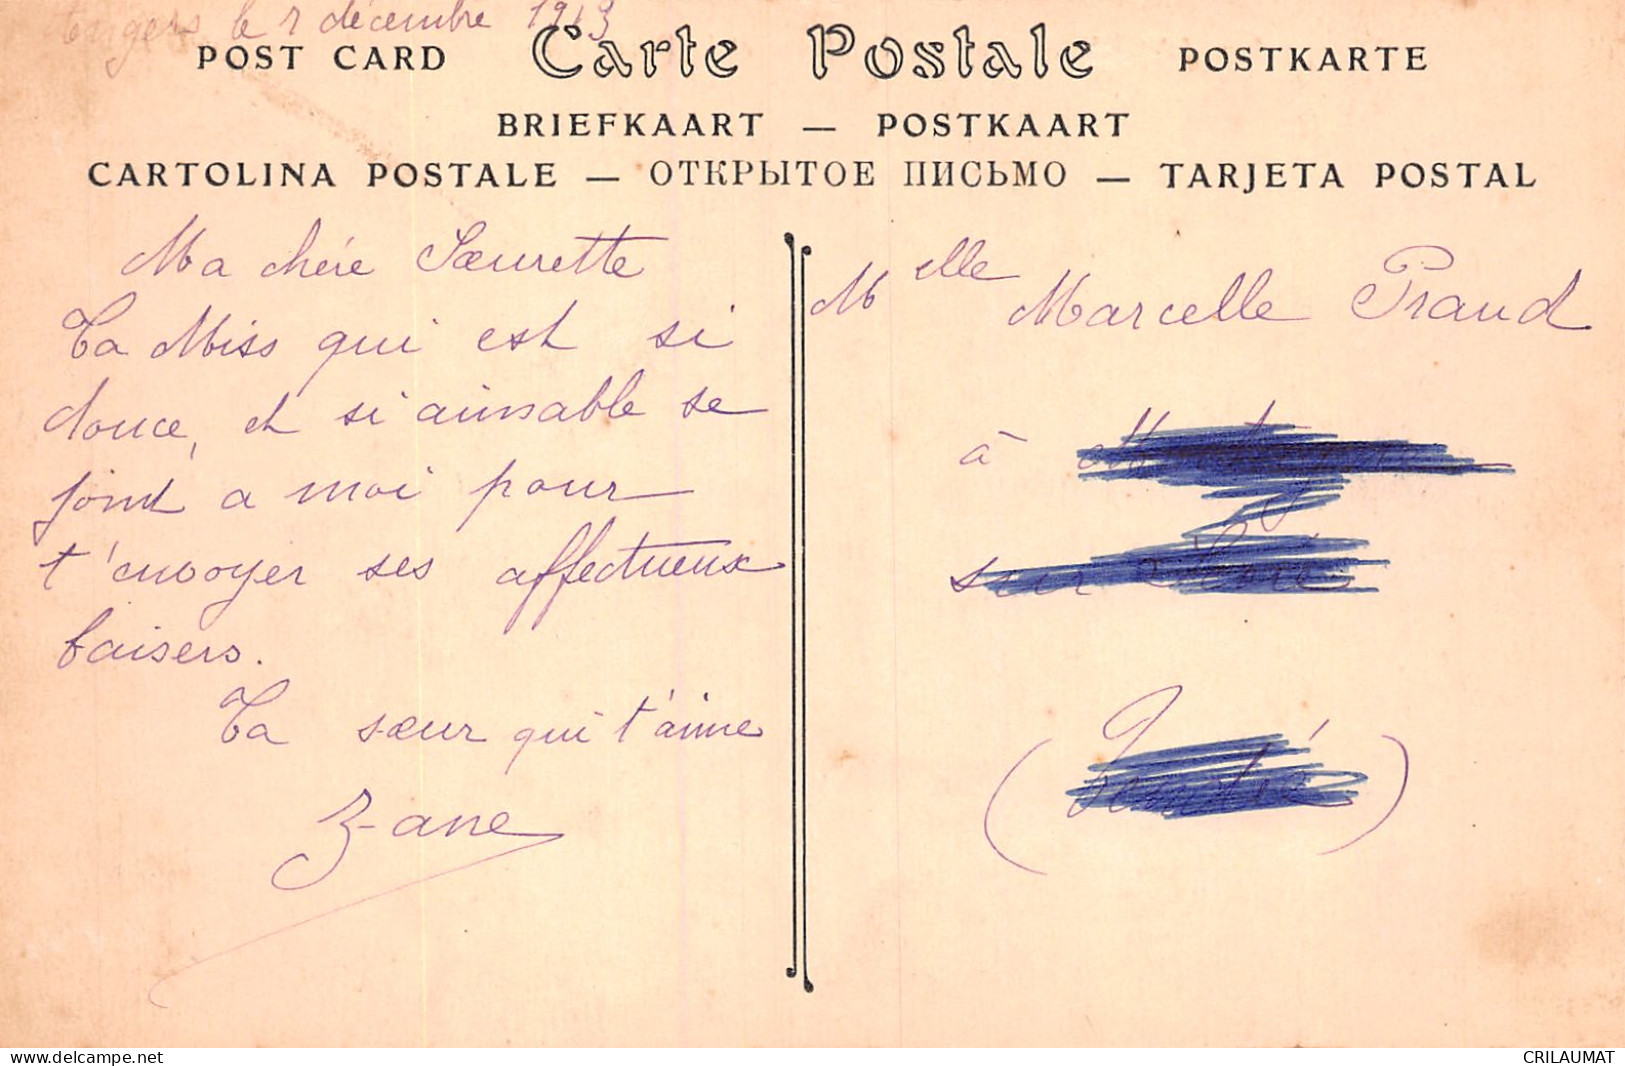 Angers le 1 décembre 1913
POST CARD Carte Postale POSTKARTE
BRIEFKAART — POSTKAART
CARTOLINA POSTALE — ОТКРЫТОЕ ПИСЬМО — TARJETA POSTAL
Ma chére Sœurette
Ta Miss qui est si
douce, et si aimable se
joint a moi pour
t'envoyer ses affectueux
baisers.
Ta sœur qui t'aime
Z-ane
Melle Marcelle Praud
à
sur
(Vendée)
delcampe.net
CRILAUMAT